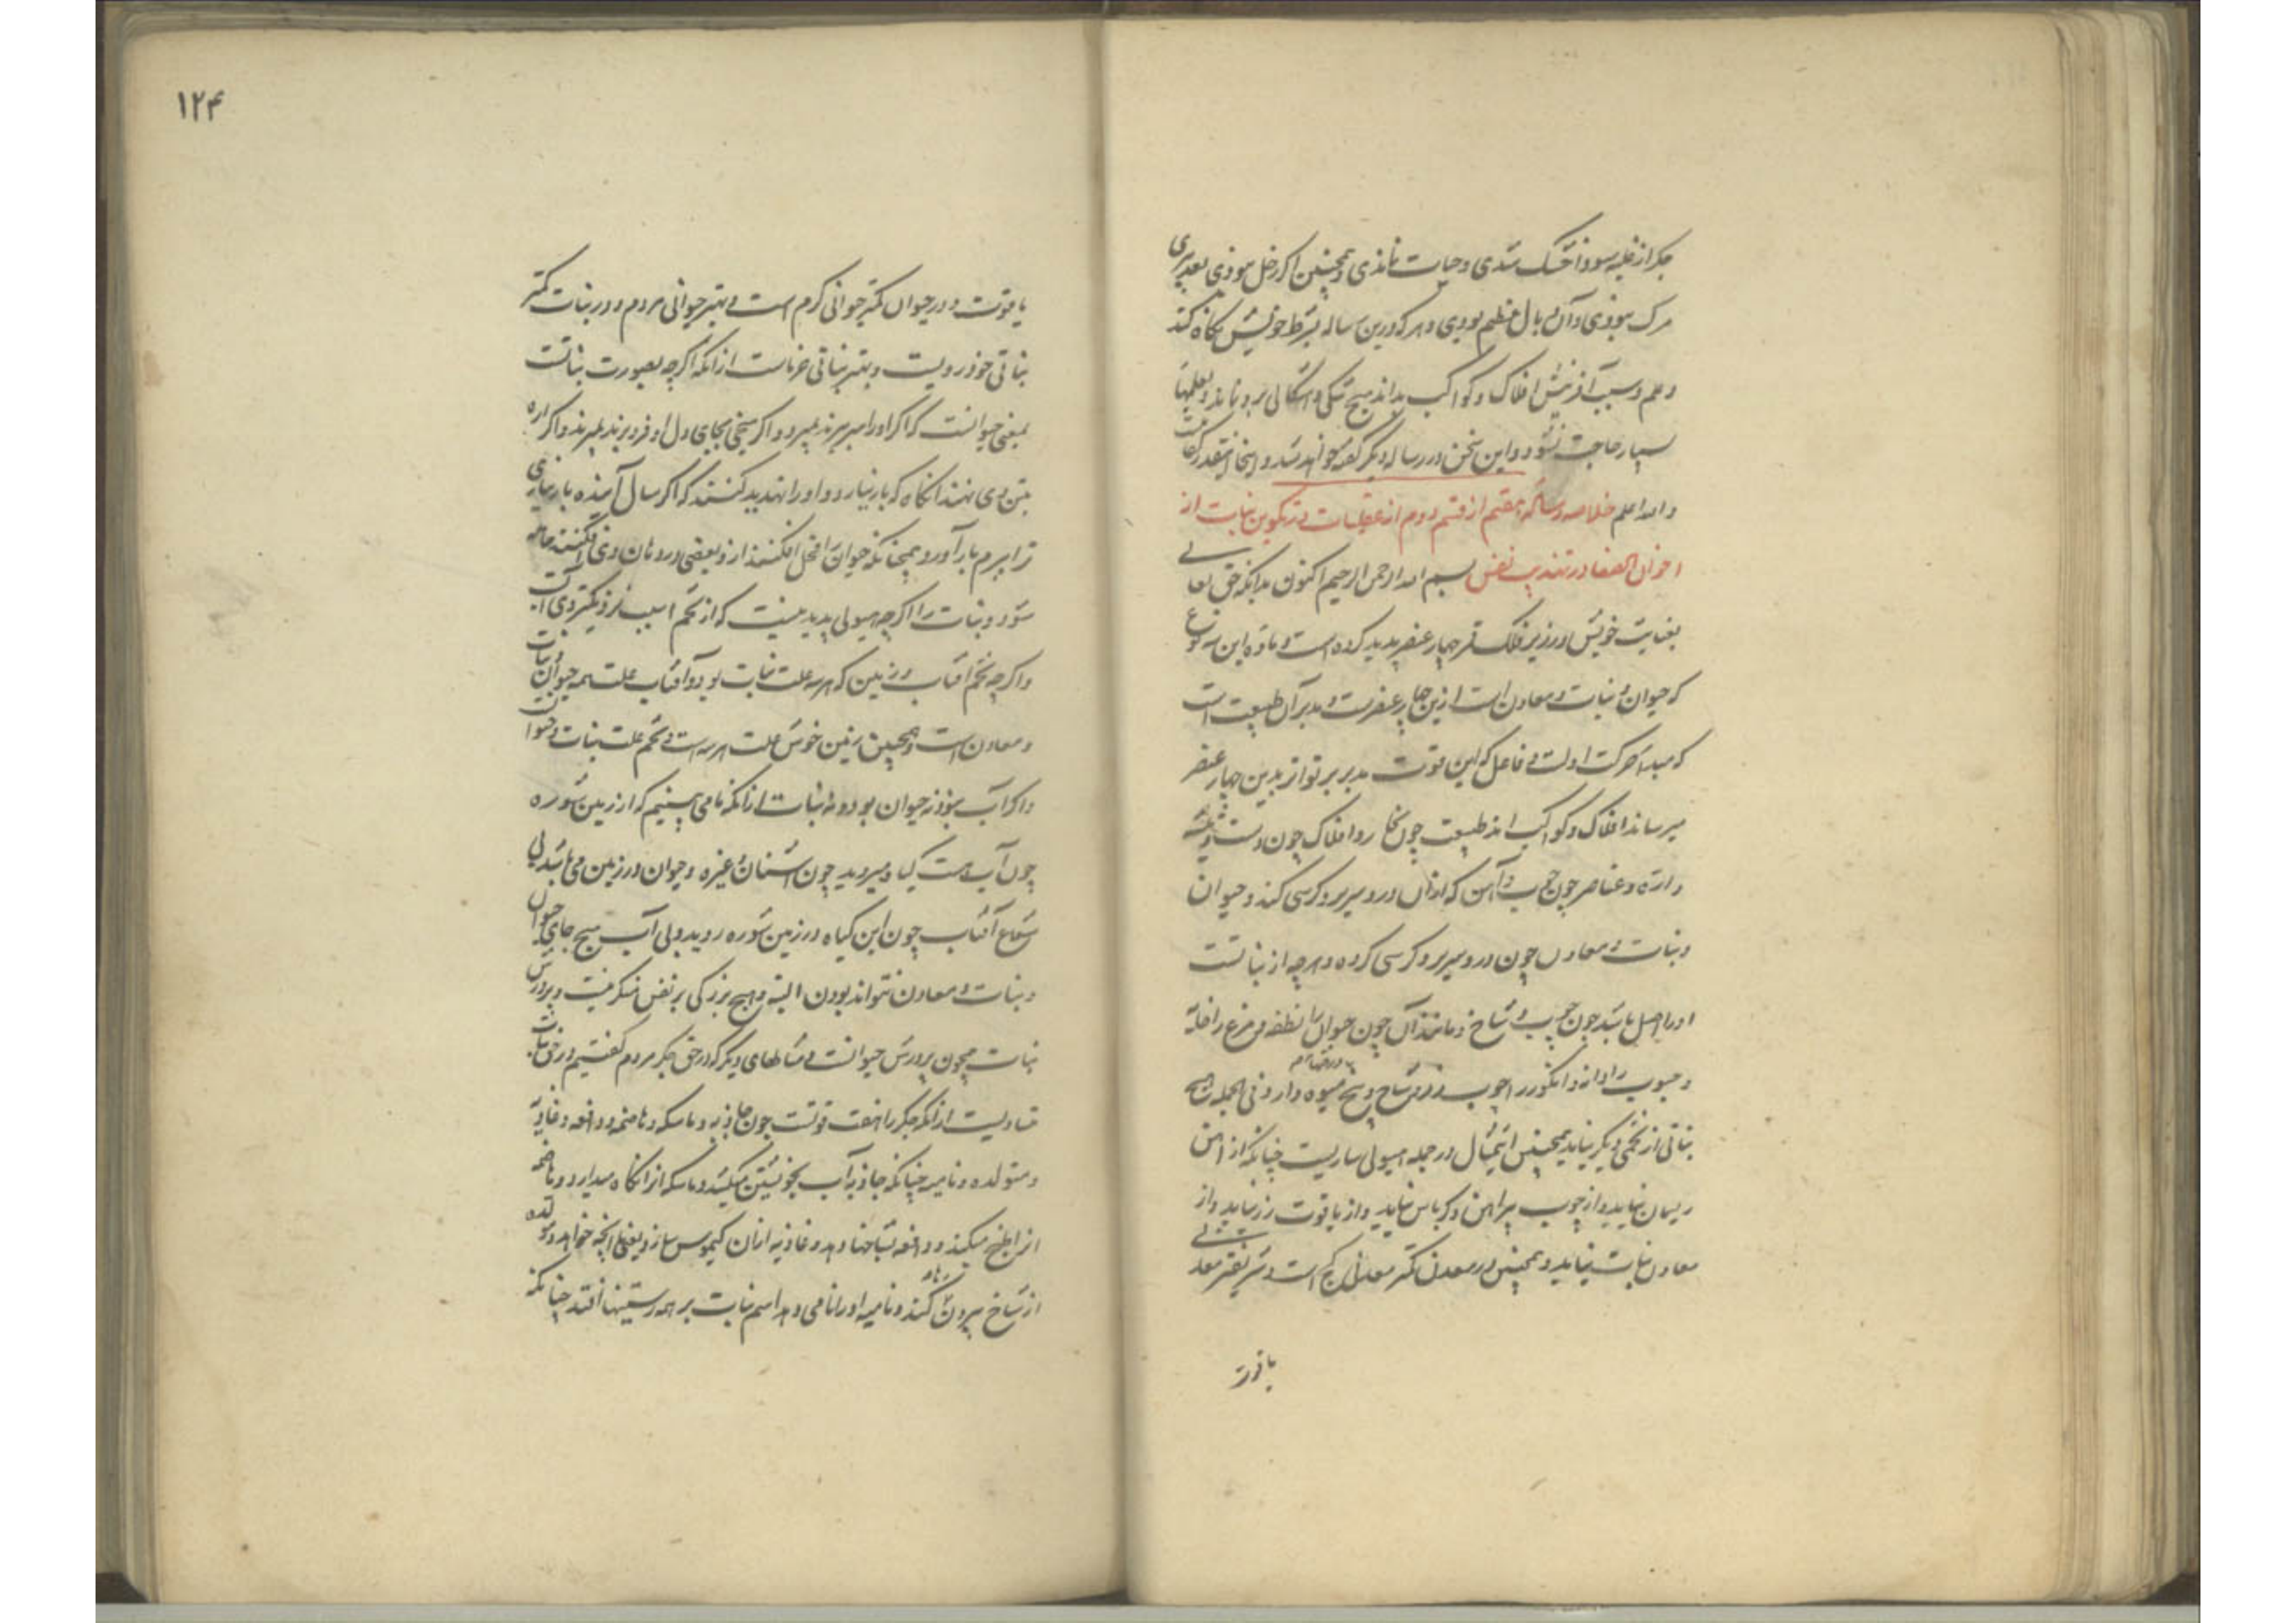 جکر از غلبه سودا خشک شدی و حیات نماندی و همچنین اکر زحل نبودی بعد پیری
مرک نبودی و آن وبال عظیم بودی و هر که درین رساله بشرط خویش نکاه کند
و علم و سبب آفرینش افلاک و کواکب بداند هیچ شکی و اشکالی برو نماند و بعلمهاء
بسیار حاجت نشود و این سخن در رساله دیکر کفته خواهد شد و اینجا اینقدر کفایتست
والله اعلم خلاصه رساله هفتم از قسم دوم از عقلیات در تکوین نبات از
اخوان الصفا در تهذیب نفس بسم الله الرحمن الرحیم اکنون بدانکه حق تعالی
بعنایت خویش در زیر فلک قمر چهار عنصر پدید کرده است و ماده این سه نوع
که حیوان و نبات و معادن است ازین چهار عنصرست و مدبر آن طبیعت است
که مبداء حرکت اولست و فاعل کل این قوت مدبر بر تواتر بدین چهار عنصر
میرساند افلاک و کواکب اند طبیعت چون نجار و افلاک چون دست و تیشه
و اره و عناصر چون چوب و آهن که ازان در و سریر و کرسی کند و حیوان
و نبات و معادن چون در و سریر و کرسی کرده و هرچه از نباتست
او را اصل باشد چون چوب و شاخ و مانند آن چون حیوان را نطفه و مرغ را خایه
و حبوب را دانه و انکور را چوب و شاخ و بیخ میوه دار و فی الجمله هیچ
نباتی از تخمی دیکر نیاید همچنین این مثال در جمله هیولی ساریست چنانکه از آهن
ریسمان نیاید و از چوب پیراهن و کرباس نیاید و از یاقوت زر نیاید و از
معادن نبات نیاید و همچنین در معدن کمتر معدنی کچ است و شریفتر معدنی
یاقوت
۱۲۴
یاقوت و در حیوان کمتر حیوانی کرم است و بهتر حیوانی مردم و در نبات کمتر
نباتی خودرویست و بهتر نباتی خرماست از آنکه اکرچه بصورت نباتست
بمعنی حیوانست که اکر او را سر ببرند بمیرد و اکر میخی بجای دل او فرو برند بمیرد و اکر اره
بتن وی نهند آنکاه که بار نیارد و او را تهدید کنند که اکر سال آینده بار نیاری
ترا ببرم بار آورد و همچنانکه حیوان فحل افکنند ازو بعضی در دهان وی افکنند حامله
شود و نبات را اکرچه هیولی پدید نیست که از تخم اسبب نزدیکتر وی آبست
و اکرچه تخم و آفتاب و زمین که هر سه علت نبات بود و آفتاب علت همه حیوان و نبات
و معادن است و همچنین زمین خوش علت هر سه است و تخم علت نبات و حیوان
و اکر آب نبود نه حیوان بود و نه نبات از آنکه ما می بینیم که از زمین شوره
چون آب هست کیاه میروید چون اشنان و غیره و حیوان در زمین می باشد بی
شعاع آفتاب چون این کیاه در زمین شوره روید ولی آب هیچ جای حیوان
و نبات و معادن نتواند بودن البته و هیچ بزرکی بر نفس منکر نیست و پرورش
نبات همچون پرورش حیوانست و مثالهای دیکر که در حق جکر مردم کفتیم در حق نبات
متساویست از آنکه جکر را هفت قوتست چون جاذبه و ماسکه و هاضمه و دافعه و غاذیه
و متولده و نامیه چنانکه جاذبه آب بخویشتن میکشد و ماسکه انرا نکاه میدارد و هاضمه
انرا طبخ میکند و دافعه بشاخها دهد و غاذیه ازان کیموس سازد یعنی انچه خواهد و متولده
از شاخ بیرون کند و نامیه او را نامی دهد اسم نبات بر همه رستنیها افتد چنانکه